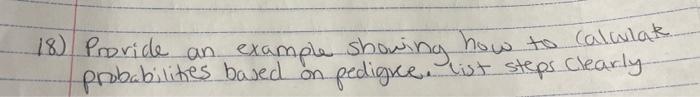 18) Provide an example showing how to calculate
probabilities based on pedigree. list steps clearly